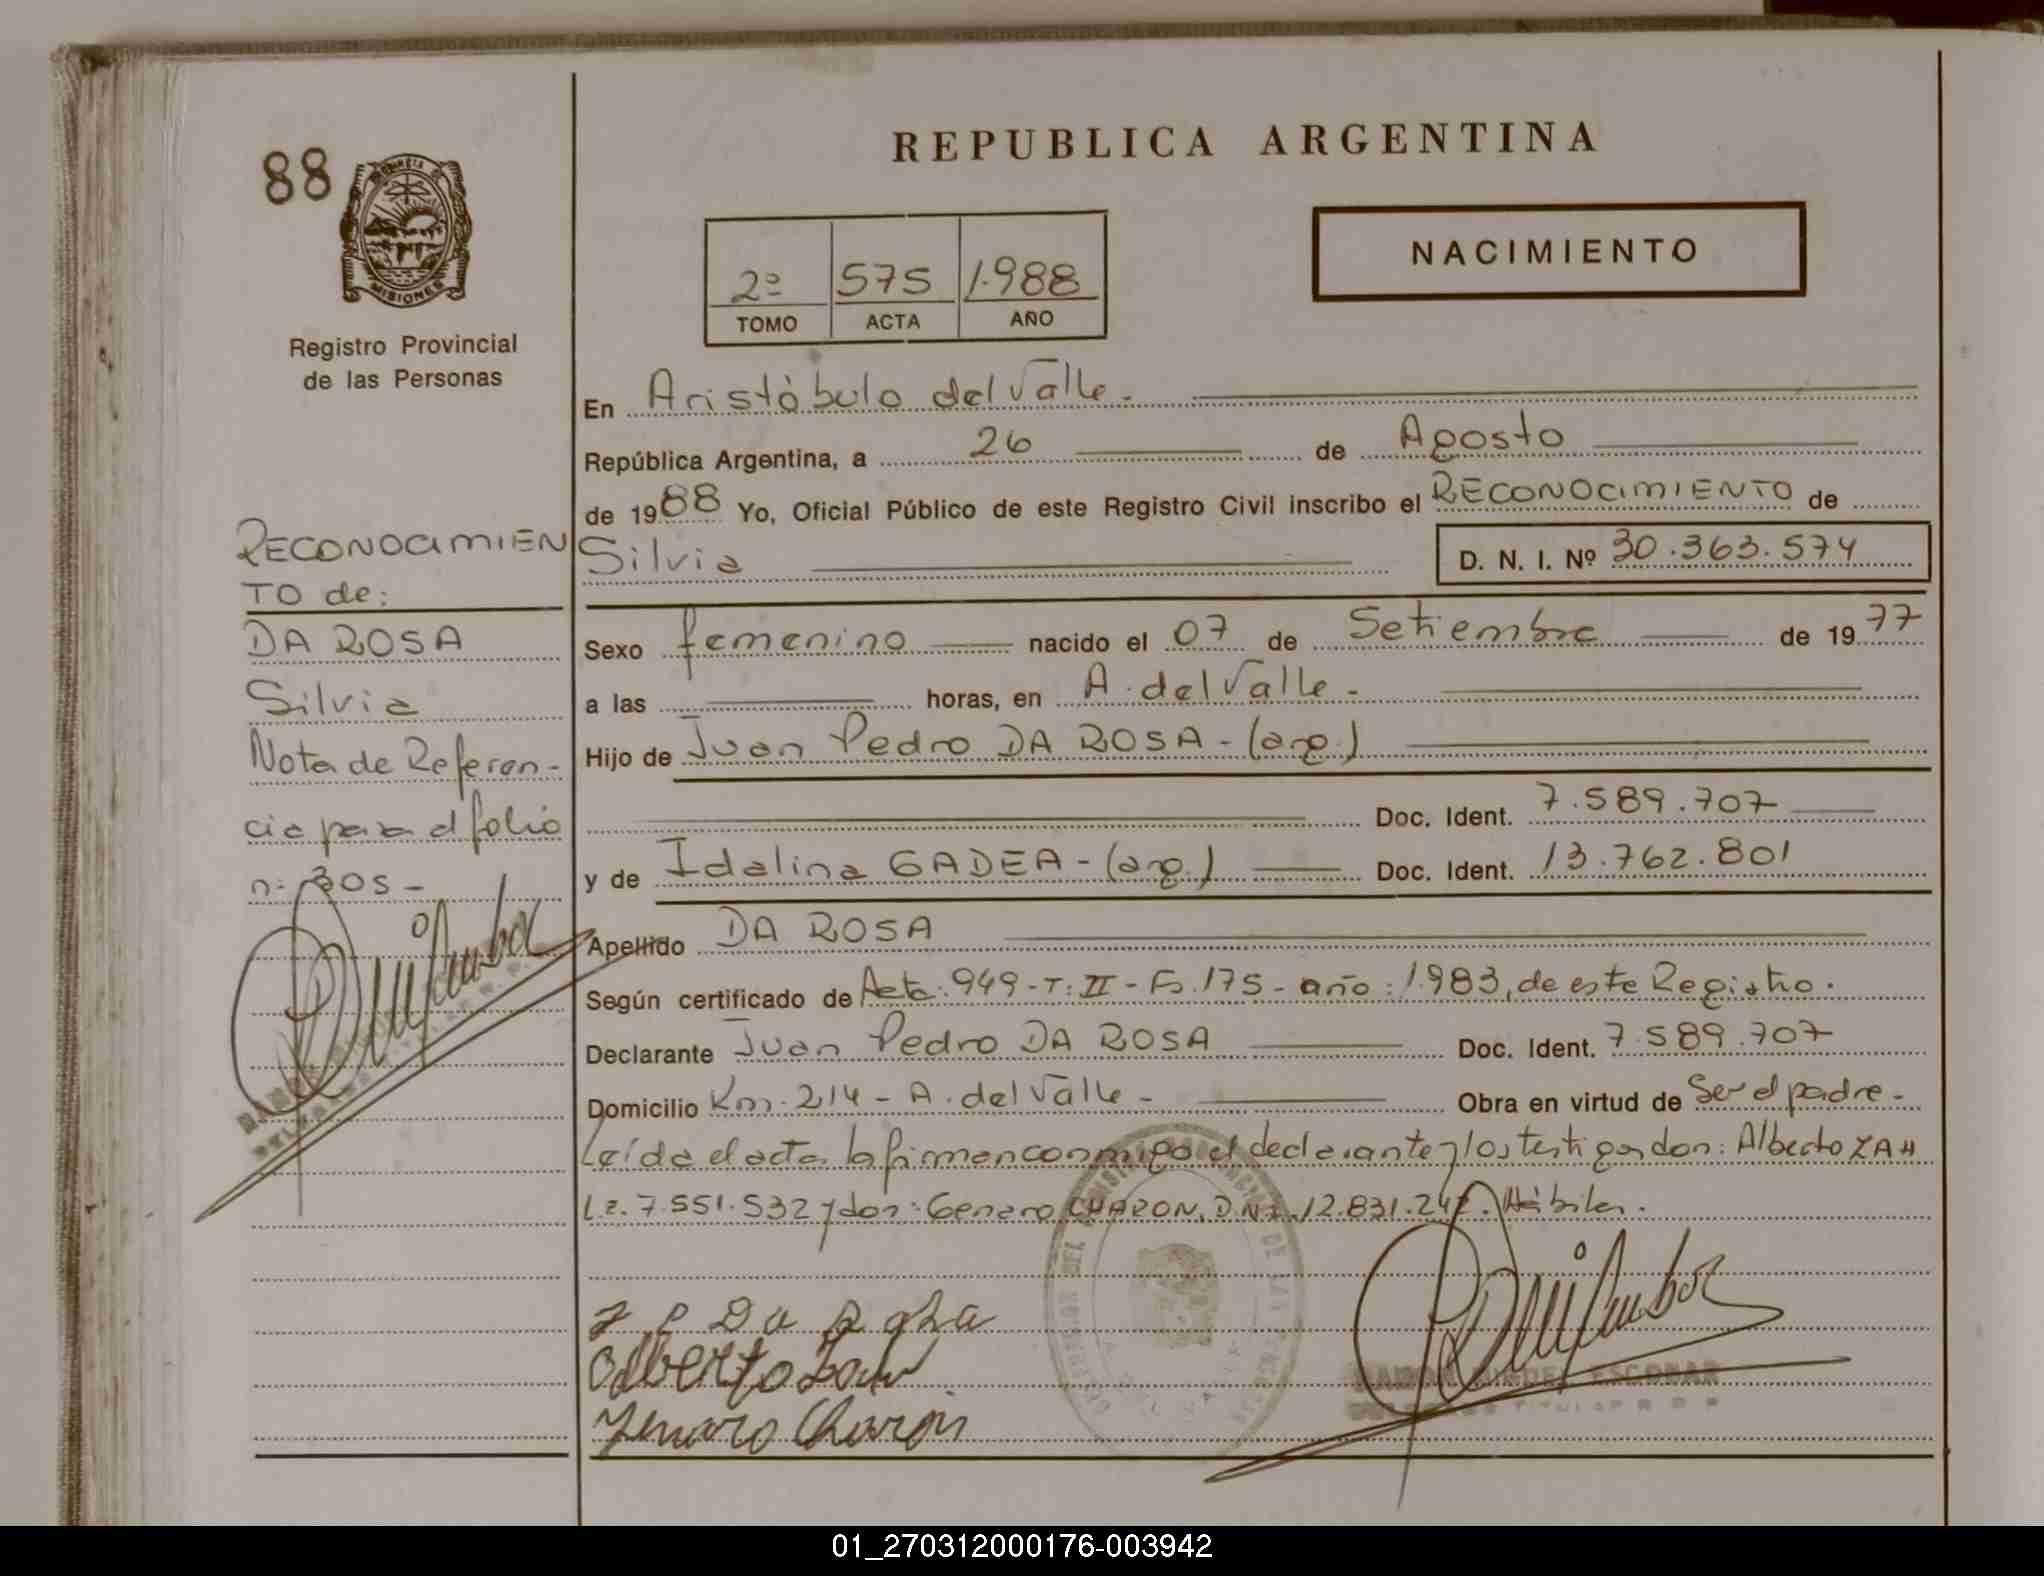 88
PROVINCIA DE
MISIONES
Registro Provincial
de las Personas
REPUBLICA ARGENTINA
2º 575 1.988
TOMO ACTA AÑO
NACIMIENTO
En Aristóbulo del Valle.-
República Argentina, a 26 de Agosto
de 1988 Yo, Oficial Público de este Registro Civil inscribo el RECONOCIMIENTO de
Silvia D. N. I. Nº 30.363.574
Sexo femenino nacido el 07 de Setiembre de 1977
a las horas, en A. del Valle -
Hijo de Juan Pedro DA ROSA - (arg.)
Doc. Ident. 7.589.707
y de Idalina GADEA - (arg.) Doc. Ident. 13.762.801
Apellido DA ROSA
Según certificado de Acta: 949 - T: II - Fo. 175 - año: 1.983, de este Registro.
Declarante Juan Pedro DA ROSA Doc. Ident. 7.589.707
Domicilio Km. 214 - A. del Valle - Obra en virtud de Ser el padre -
Leída el acta la firman conmigo el declarante y los testigos don: Alberto ZAH
L.E. 7.551.532 y don: Genaro CHARON, D.N.I. 12.831.242. Hábiles.
J P Da Roza
Alberto Zah
Jenaro Charon
RAMON MIGUEL ESCOBAR
DELEGADO TITULAR R D P
RECONOCIMIEN
TO de:
DA ROSA
Silvia
Nota de Referen-
cia para el folio
nº 305 -
01_270312000176-003942